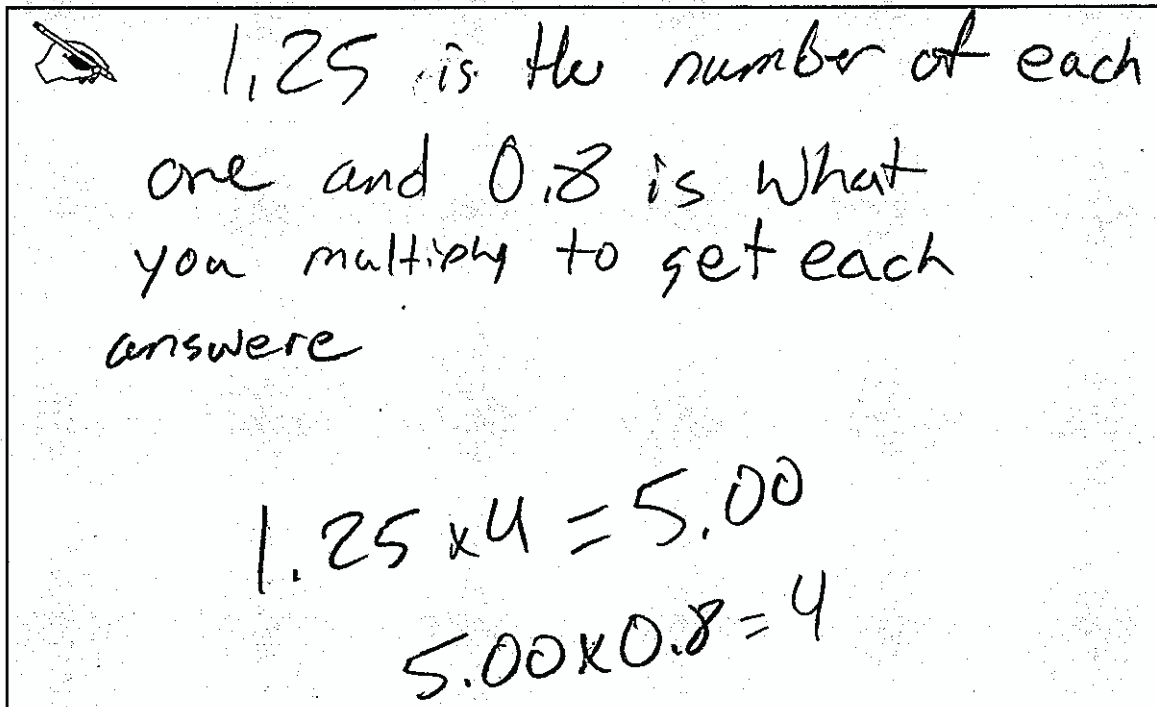 1.25 is the number of each
one and 0.8 is what
you multiply to get each
answere
1.25 x 4 = 5.00
5.00 x 0.8 = 4